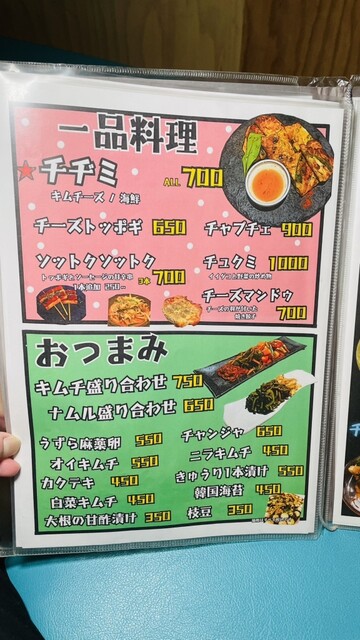 一品料理
★チヂミ ALL 700
キムチーズ / 海鮮
チーズトッポギ 650
チャプチェ 900
ソットクソットク 3本 700
トッポギとソーセージの甘辛串
1本追加 250-
チュクミ 1000
イイダコと野菜の炒め物
チーズマンドゥ 700
おつまみ
キムチ盛り合わせ 750
ナムル盛り合わせ 650
うずら麻薬卵 550
チャンジャ 650
オイキムチ 550
ニラキムチ 450
カクテキ 450
きゅうり1本漬け 550
白菜キムチ 450
韓国海苔 450
大根の甘酢漬け 350
枝豆 350